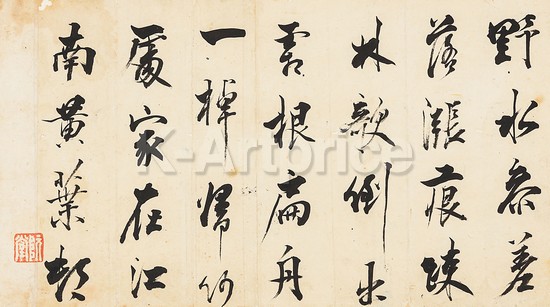 野水參差
落漲痕疎
林欹倒出
霜根扁舟
一棹歸何
處家在江
南黃葉邨
K-Artprice